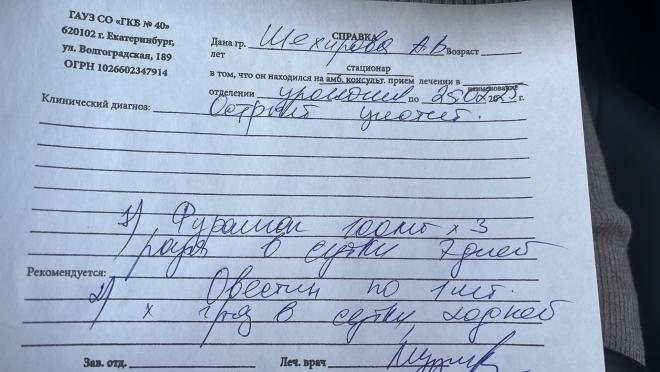 ГАУЗ СО «ГКБ № 40»
620102 г. Екатеринбург,
ул. Волгоградская, 189
ОГРН 1026602347914
СПРАВКА
Дана гр. А.В Возраст
лет
стационар
в том, что он находился на амб. консульт. прием лечении в
наименование
отделении урологии по 25.02.2025 г.
Клинический диагноз: Острый цистит.
1) Фурамаг 100мг х 3
раза в сутки 7 дней
Рекомендуется:
2) Овестин по 1 шт.
х 1 раз в сутки 20 дней
Зав. отд. Леч. врач